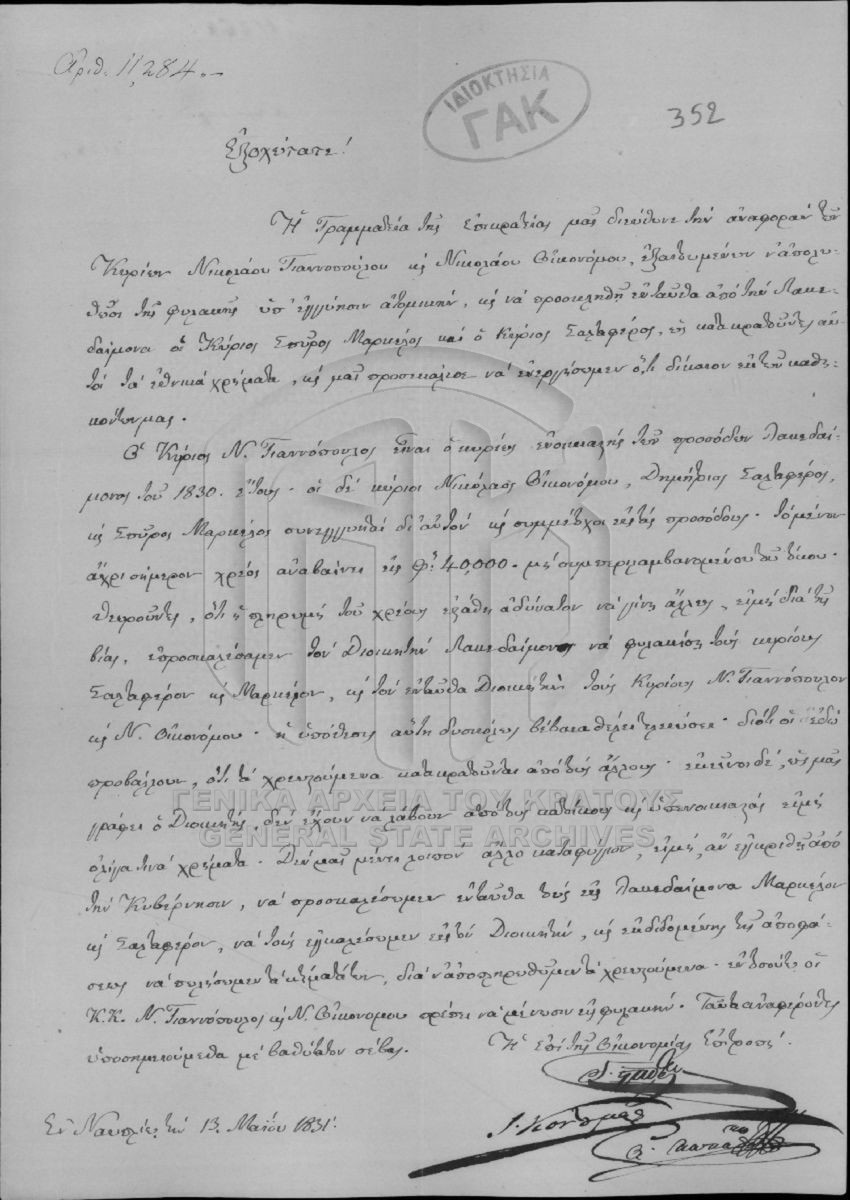 Ἀριθ. 11,284.-
ΙΔΙΟΚΤΗΣΙΑ
ΓΑΚ
352
Ἐξοχώτατε!
Ἡ Γραμματεία τῆς ἐπικρατείας μᾶς διεύθυνε τὴν ἀναφορὰν τῶν
Κυρίων Νικολάου Γιαννοπούλου καὶ Νικολάου Οἰκονόμου, ἐξαιτουμένων ν' ἀπολυ-
θῶσι τῆς φυλακῆς ὑπ' ἐγγύησιν ἀτομικὴν, καὶ νὰ προσκληθῇ ἐνταῦθα ἀπὸ τὴν Λακε-
δαίμονα ὁ Κύριος Σπῦρος Μαρκέλος καὶ ὁ Κύριος Σαλταφέρος, ὡς κατακρατοῦντες αὐ-
τοὶ τὰ ἐθνικὰ χρήματα, καὶ μᾶς προσκάλεσε νὰ ἐνεργήσωμεν ὅ,τι δίκαιον ἐκ τῶν καθη-
κόντων μας.
Ὁ Κύριος Ν. Γιαννόπουλος εἶναι ὁ κυρίως ἐνοικιαστὴς τῶν προσόδων Λακεδαί-
μονος τοῦ 1830. ἔτους· οἱ δὲ κύριοι Νικόλαος Οἰκονόμου, Δημήτριος Σαλταφέρος,
καὶ Σπῦρος Μαρκέλος συνεγγυηταὶ δι' αὐτὸν καὶ συμμέτοχοι εἰς τὰς προσόδους. τὸ μένον
ἄχρι σήμερον χρέος ἀναβαίνει εἰς Φοί 40,000. μὲ συμπεριλαμβανομένου τοῦ τόκου.
Θεωροῦντες, ὅτι ἡ πληρωμὴ τοῦ χρέους ἐστάθη ἀδύνατον νὰ γίνῃ ἄλλως, εἰμὴ διὰ τῆς
βίας, ἐπροσκαλέσαμεν τὸν Διοικητὴν Λακεδαίμονος νὰ φυλακίσῃ τοὺς κυρίους
Σαλταφέρον καὶ Μαρκέλον, καὶ τὸν ἐνταῦθα Διοικητὴν τοὺς Κυρίους Ν. Γιαννόπουλον
καὶ Ν. Οἰκονόμου· ἡ ὑπόθεσις αὕτη δυσκόλως βέβαια θέλει τελειώσει· διότι οἱ ἐδῶ
προβάλλουν, ὅτι τὰ χρεωστούμενα κατακρατοῦνται ἀπὸ τοὺς ἄλλους· ἐκεῖνοι δέ, ὡς μᾶς
γράφει ὁ Διοικητὴς, δὲν ἔχουν νὰ λάβουν ἀπὸ τοὺς κατοίκους καὶ ὑπενοικιαστὰς εἰμὴ
ὀλίγα τινὰ χρήματα. Δὲν μᾶς μένει λοιπὸν ἄλλο καταφύγιον, εἰμὴ, ἂν ἐγκριθῇ ἀπὸ
τὴν Κυβέρνησιν, νὰ προσκαλέσωμεν ἐνταῦθα τοὺς εἰς Λακεδαίμονα Μαρκέλον
καὶ Σαλταφέρον, νὰ τοὺς ἐγκαλέσωμεν εἰς τὸν Διοικητὴν, καὶ ἐκδιδομένης τῆς ἀποφά-
σεως νὰ πωλήσωμεν τὰ κτήματά των, διὰ ν' ἀποπληρωθῶμεν τὰ χρεωστούμενα· ἐν τοσούτῳ οἱ
Κ.Κ. Ν. Γιαννόπουλος καὶ Ν. Οἰκονόμου πρέπει νὰ μένωσιν εἰς φυλακήν. Ταῦτα ἀναφέροντες
ὑποσημειούμεθα μὲ βαθύτατον σέβας.
Ἡ Ἐπὶ τῆς Οἰκονομίας Ἐπιτροπή.
Ἐν Ναυπλίῳ τὴν 13. Μαΐου 1831.
ΓΕΝΙΚΑ ΑΡΧΕΙΑ ΤΟΥ ΚΡΑΤΟΥΣ
GENERAL STATE ARCHIVES